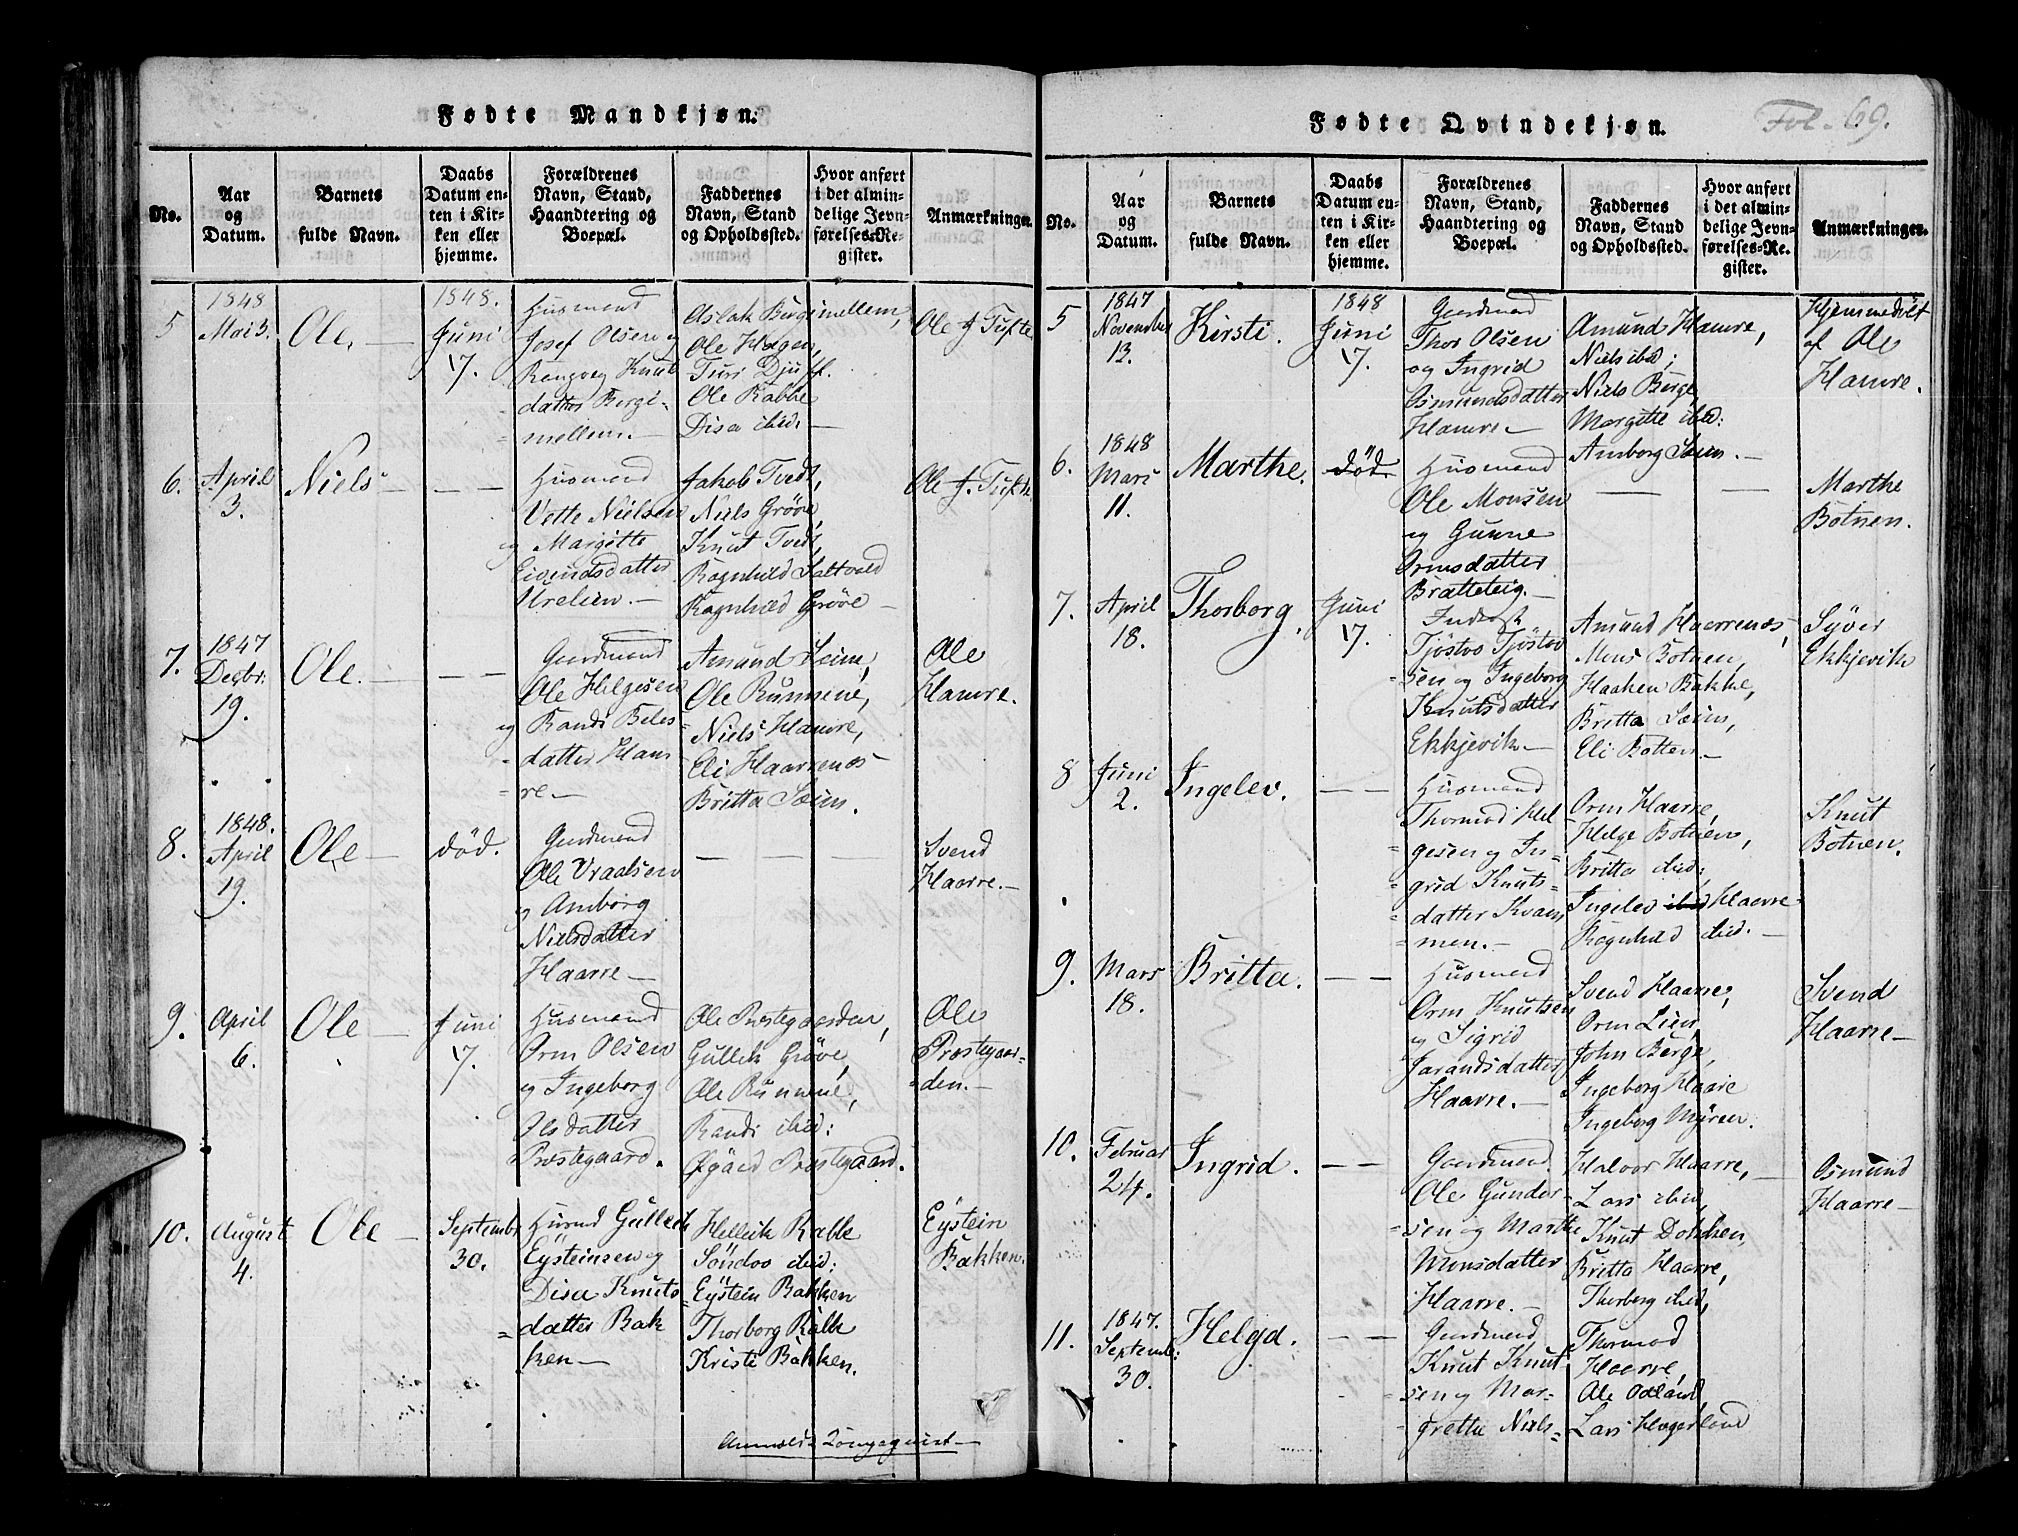 Fødte Mandkjøn.
No.
Aar
og
Datum.
Barnets
fulde Navn.
Daabs
Datum en-
ten i Kir-
ken eller
hjemme.
Forældrenes
Navn, Stand,
Haandtering og
Boepæl.
Faddernes
Navn, Stand
og Opholdssted.
Hvor anført
i det almin-
delige Jevn-
førelses-Re-
gister.
Anmærkninger.
5
1848
Mai 3.
Ole.
1848.
Juni
17.
Husmand
Josef Olsen og
Rangveg Knut
datter Bergi-
mellem.
Aslak Bergimellem,
Ole Hagen,
Turi Djuf.
Ole Rabbe
Disa ibid.
Ole J. Tufte
6.
April
3.
Niels
Husmand
Vette Nielsen
og Margitte
Eivindsdatter
Urelien.
Jakob Tvedt,
Niels Grøve,
Knut Tvedt,
Ragnhild Saltvold
Ragnhild Grøve
Ole J. Tufte
7.
1847
Decbr:
19.
Ole.
Gaardmand
Ole Helgesen
og Randi
datter Ham
re
Amund Seim,
Ole Rünnene,
Niels Hamre,
Eli Haarrenæs
Britta Seim.
Ole
Hamre.
8.
1848.
April
19.
Ole
død.
Gaardmand
Ole Vraalsen
og Amborg
Nielsdatter
Haarre
Svend
Haarre.
9.
April
6.
Ole
Juni
17.
Husmand
Orm Olsen
og Ingeborg
Olsdatter
Præstegaard.
Ole Præstegaarden,
Gullik Grøve,
Ole Rünnene,
Randi ibid:
Præstegaard.
Ole
Præstegaar-
den.
10.
August
4.
Ole
Septembr
30.
Husmd Gullik
Eysteinsen og
Disa Knuts
datter Bak
ken
Hellik Rabbe
Söndov ibid:
Eystein Bakken
Thorborg Rabbe
Kristi Bakken.
Eystein
Bakken.
Fødte Qvindekjøn.
Fol. 69.
No.
Aar
og
Datum.
Barnets
fulde Navn.
Daabs
Datum en-
ten i Kir-
ken eller
hjemme.
Forældrenes
Navn, Stand,
Haandtering og
Boepæl.
Faddernes
Navn, Stand
og Opholdssted.
Hvor anført
i det almin-
delige Jevn-
førelses-Re-
gister.
Anmærkninger.
5
1847
November
13.
Kirsti.
1848
Juni
17.
Gaardmand
Thor Olsen
og Ingrid
Osmundsdatter
Hamre
Amund Hamre,
Niels ibid;
Niels Berge,
Margitte ibid:
Amborg Seim.
Hjemmedøbt
af Ole
Hamre.
6.
1848
Mars
11.
Marthe.
død
Husmand
Ole Monsen
og Gunne
Ormsdatter
Bratteteig.
Marthe
Botnen.
7.
April
18.
Thorborg.
Juni
17.
Inderst
Tjöstov Tjöstov
sen og Ingeborg
Knutsdatter
Ekkjevik
Amund Haarrenæs,
Mons Botnen,
Haaken Bakke,
Britta Seim,
Eli Botnen
Syver
Ekkjevik
8
Juni
2.
Ingelev.
Husmand
Thormod Hel
gesen og In-
grid Knuts-
datter Kvam
men.
Orm Haarre,
Helge Botnen,
Britta ibid;
Ingelev ibid Haarre
Ragnhild ibid.
Knut
Botnen.
9.
Mars
18.
Britta.
Husmand
Orm Knutsen
og Sigrid
Jarandsdatter
Haarre.
Svend Haarre,
Orm Lien,
John Berge,
Ingeborg Haarre
Ingeborg Myren.
Svend
Haarre
10.
Februar
24.
Ingrid.
Gaardmand
Ole Gunder-
sen og Marthe
Monsdatter
Haarre.
Halvor Haarre,
Lars ibid,
Knut Dokken,
Britta Haarre,
Thorborg ibid,
Osmund
Haarre
11.
1847.
Septemb:
30.
Helgd.
Gaardmand
Knut Knut
sen og Mar-
grethe Niels-
Thormod
Haarre,
Ole Odland
Lars Hægerland